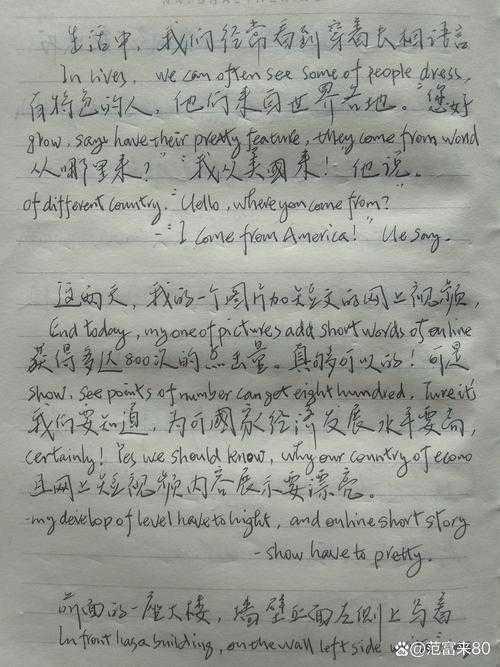 生活中，我们经常看到穿着长相语言
In lives, we can often see some of people dress,
有特色的人，他们来自世界各地。"您好
grow, says have their pretty feature, they come from world
从哪里来？""我从美國来！他说。
of different country. "Hello, where you come from?"
-"I come from America!" He say.
这两天，我的一个图片加短文的网上视频，
End today, my one of pictures add short words of online
获得多达800次的点击量。真的可以的！可是
show, see points of number can get eight hundred. Ture it's
我们要知道，为何國家经济发展水平要高，
certainly! Yes we should know, why our country of econo
且网上短视频内容展示要漂亮。
-my develop of level have to hight, and online short story
-show have to pretty.
前面的一座大楼，墙壁正面左侧上写着
In front has a building, on the wall left side
@范富来80